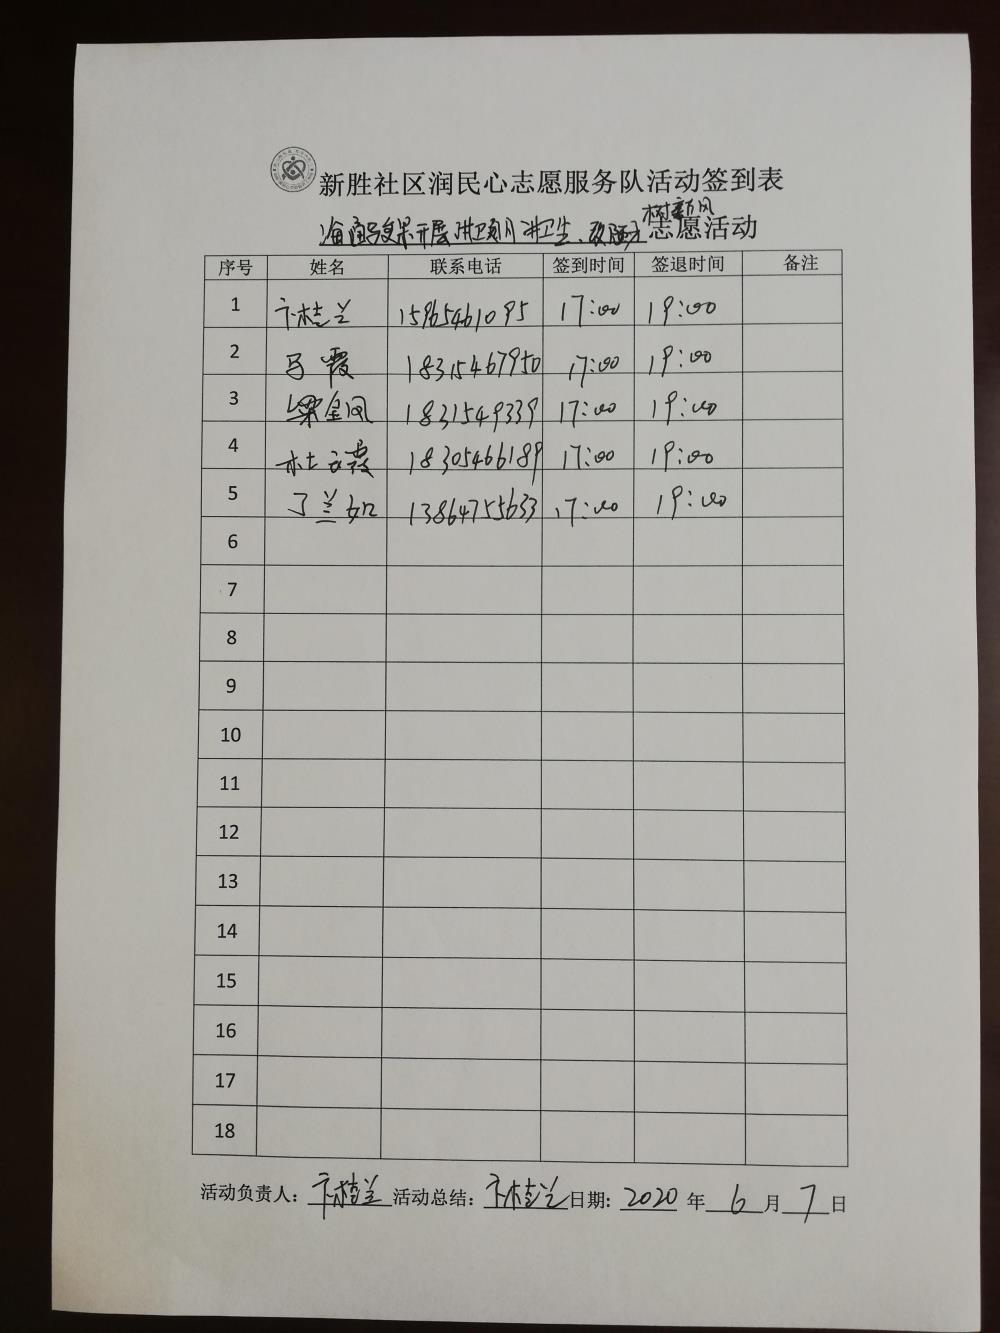 新胜社区润民心志愿服务队活动签到表
树新风
开展讲文明讲卫生、志愿活动
序号 姓名 联系电话 签到时间 签退时间 备注
1 卞桂兰 15965461095 17:00 19:00
2 马霞 18315467950 17:00 19:00
3 梁金凤 1831549339 17:00 19:00
4 杜云霞 18305466189 17:00 19:00
5 丁兰如 13864755633 17:00 19:00
6
7
8
9
10
11
12
13
14
15
16
17
18
活动负责人: 卞桂兰 活动总结: 卞桂兰 日期: 2020 年 6 月 7 日